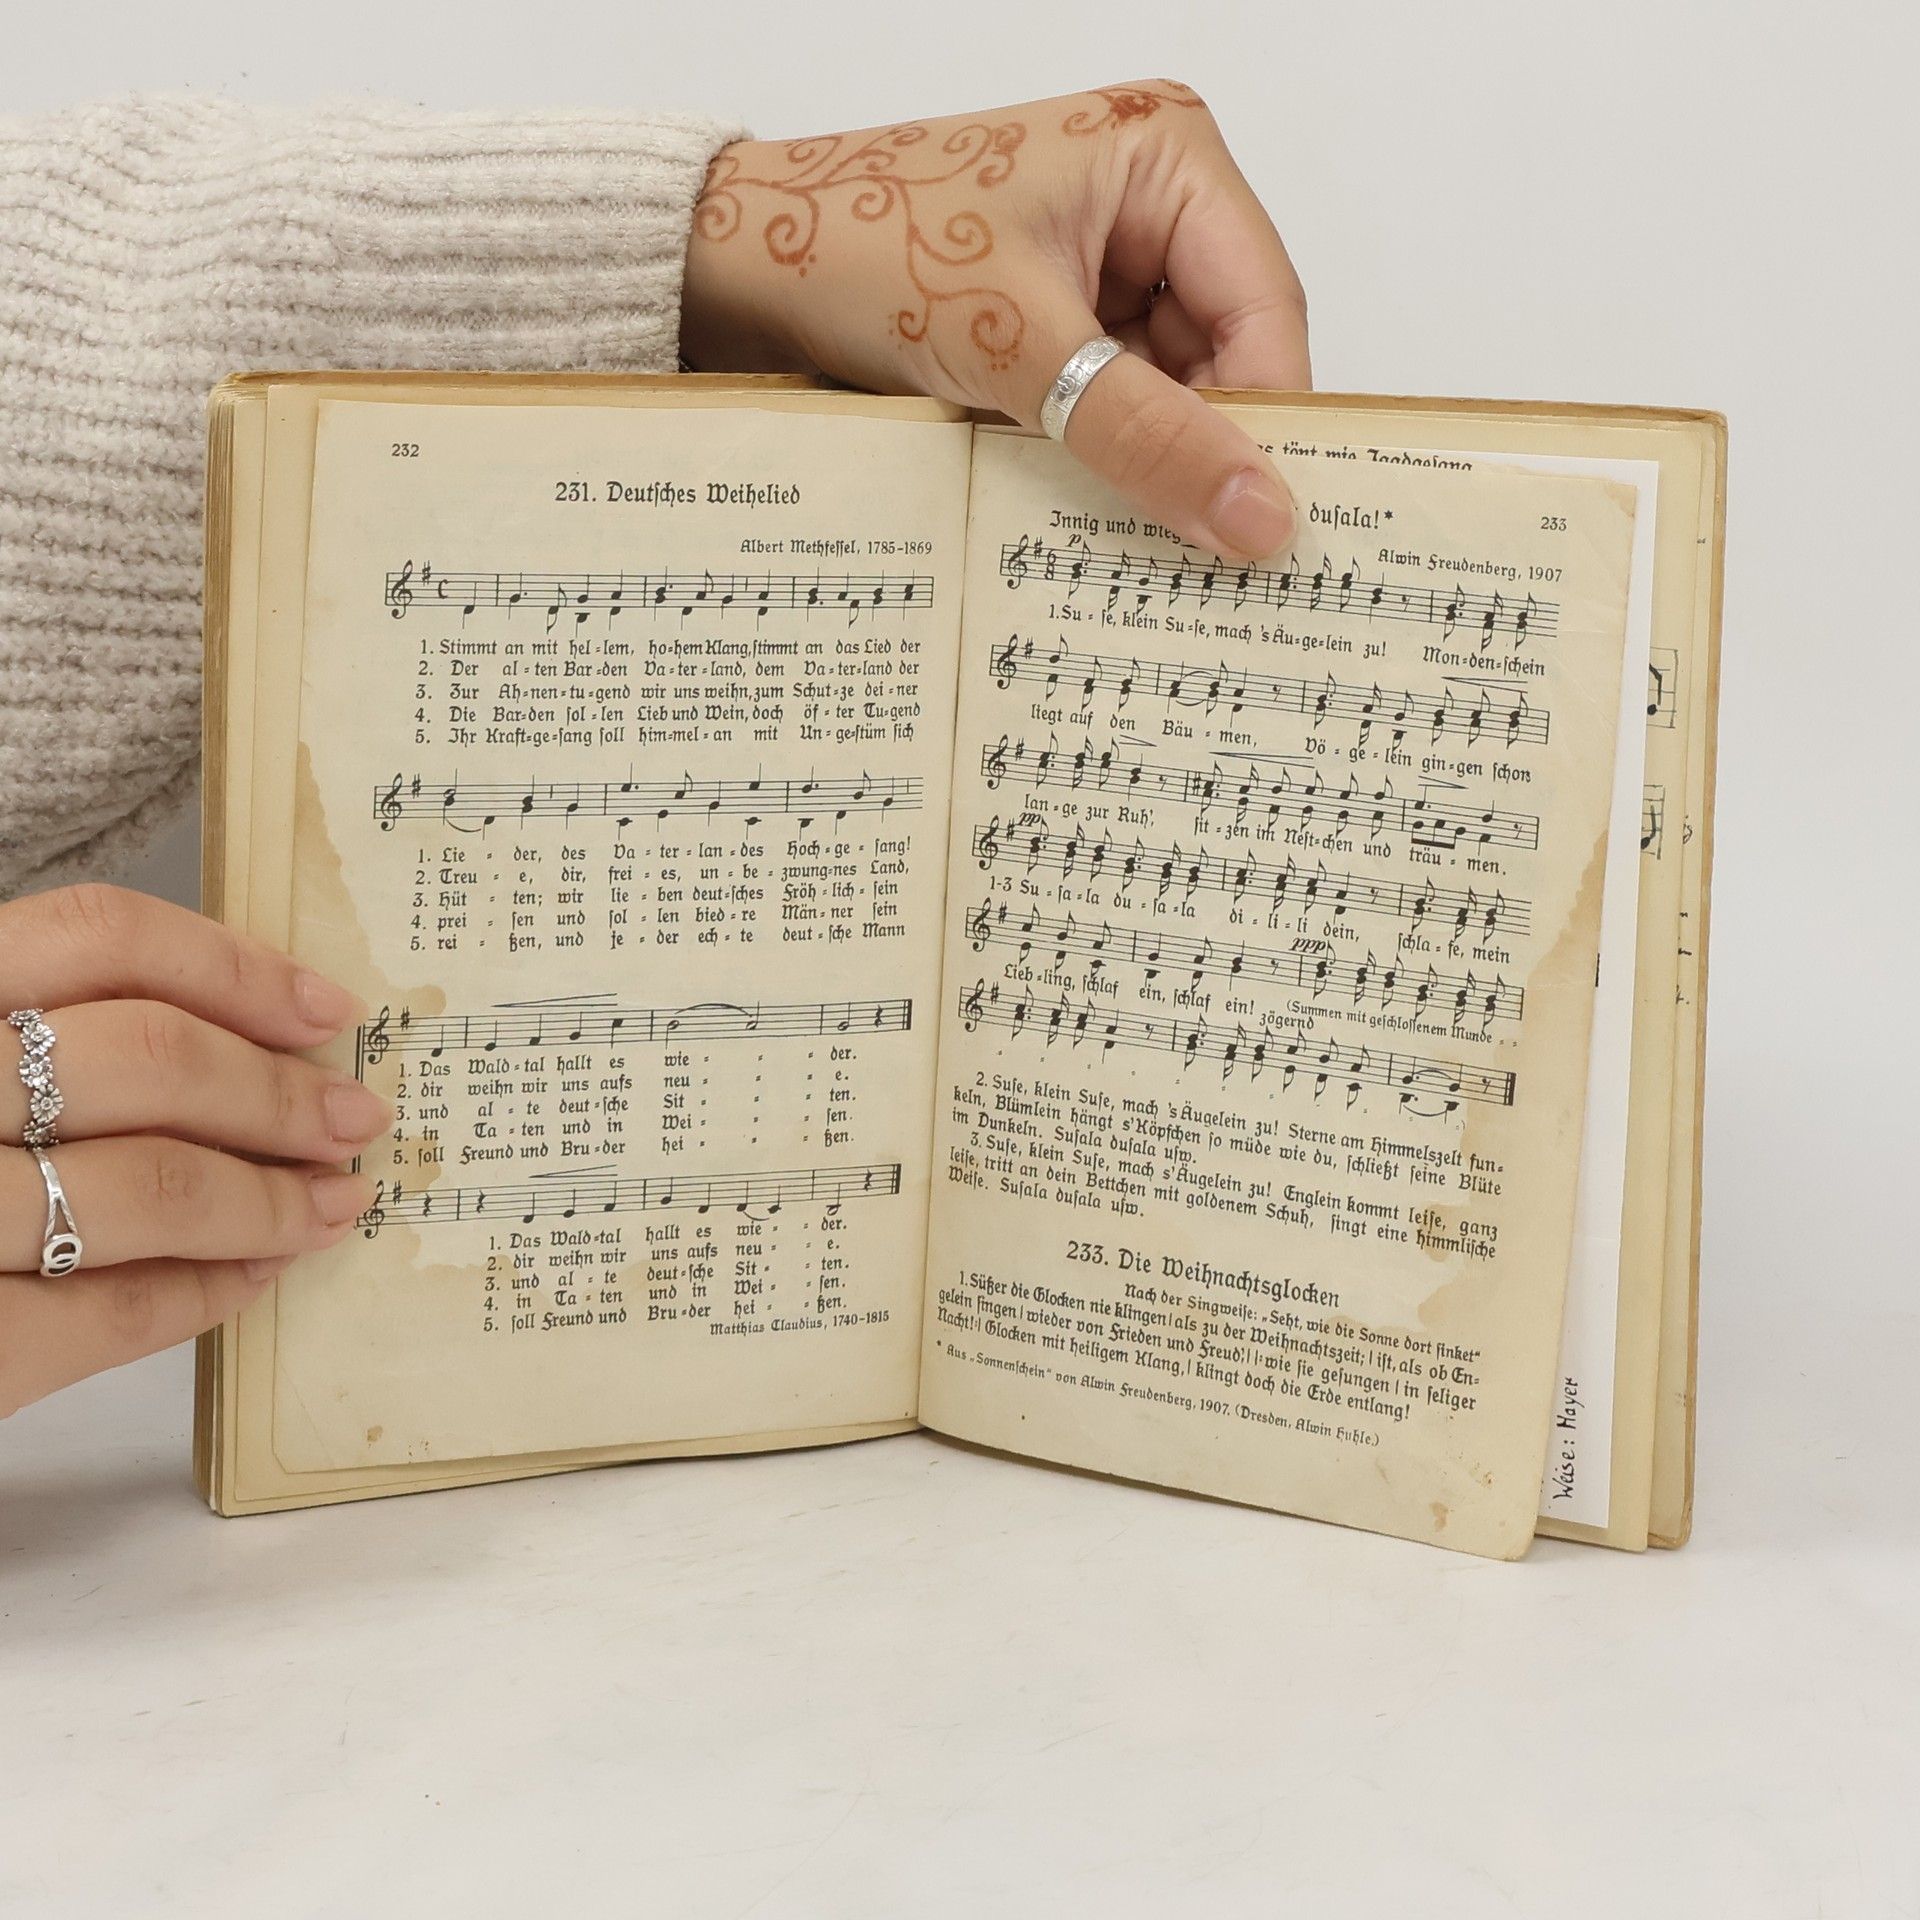 232
231. Deutſches Weihelied
Albert Methfeſſel, 1785-1869
1. Stimmt an mit hel=lem, ho=hem Klang, ſtimmt an das Lied der
2. Der al=ten Bar=den Va=ter=land, dem Va=ter=land der
3. Zur Ah=nen=tu=gend wir uns weihn, zum Schut=ze dei=ner
4. Die Bar=den ſol=len Lieb und Wein, doch öf=ter Tu=gend
5. Ihr Kraft=ge=ſang ſoll him=mel=an mit Un=ge=ſtüm ſich
1. Lie = der, des Va = ter = lan = des Hoch = ge = ſang!
2. Treu = e, dir, frei = es, un = be = zwung=nes Land,
3. Hüt = ten; wir lie = ben deut=ſches Fröh = lich = ſein
4. prei = ſen und ſol = len bied = re Män = ner ſein
5. rei = ßen, und je = der ech = te deut = ſche Mann
1. Das Wald = tal hallt es wie = = = der.
2. dir weihn wir uns aufs neu = = = e.
3. und al = te deut =ſche Sit = = = ten.
4. in Ta = ten und in Wei = = = ſen.
5. ſoll Freund und Bru =der hei = = = ßen.
1. Das Wald=tal hallt es wie = = der.
2. dir weihn wir uns aufs neu = = e.
3. und al = te deut=ſche Sit = = ten.
4. in Ta = ten und in Wei = = ſen.
5. ſoll Freund und Bru =der hei = = ßen.
Matthias Claudius, 1740-1815
tönt wie Jagdgeſang
duſala!* 233
Innig und
Alwin Freudenberg, 1907
p
1. Su = ſe, klein Su=ſe, mach 's Äu=ge=lein zu! Mon=den=ſchein
liegt auf den Bäu = men, Vö = ge = lein gin=gen ſchon
lan = ge zur Ruh', ſit = zen im Neſt=chen und träu = men.
pp
1-3 Su = ſa = la du = ſa = la di = li = li dein, ſchla = fe, mein
ppp
Lieb =ling, ſchlaf ein, ſchlaf ein! (Summen mit geſchloſſenem Munde = =
zögernd
2. Suſe, klein Suſe, mach 's Äugelein zu! Sterne am Himmelszelt fun=
keln, Blümlein hängt s'Köpfchen ſo müde wie du, ſchließt ſeine Blüte
im Dunkeln. Suſala duſala uſw.
3. Suſe, klein Suſe, mach s'Äugelein zu! Englein kommt leiſe, ganz
leiſe, tritt an dein Bettchen mit goldenem Schuh, ſingt eine himmliſche
Weiſe. Suſala duſala uſw.
233. Die Weihnachtsglocken
Nach der Singweiſe: „Seht, wie die Sonne dort ſinket“
1. Süßer die Glocken nie klingen | als zu der Weihnachtszeit; | iſt, als ob En=
gelein ſingen | wieder von Frieden und Freud'; | |: wie ſie geſungen | in ſeliger
Nacht! :| Glocken mit heiligem Klang, | klingt doch die Erde entlang!
* Aus „Sonnenſchein“ von Alwin Freudenberg, 1907. (Dresden, Alwin Huhle.)
Weise: Mayer